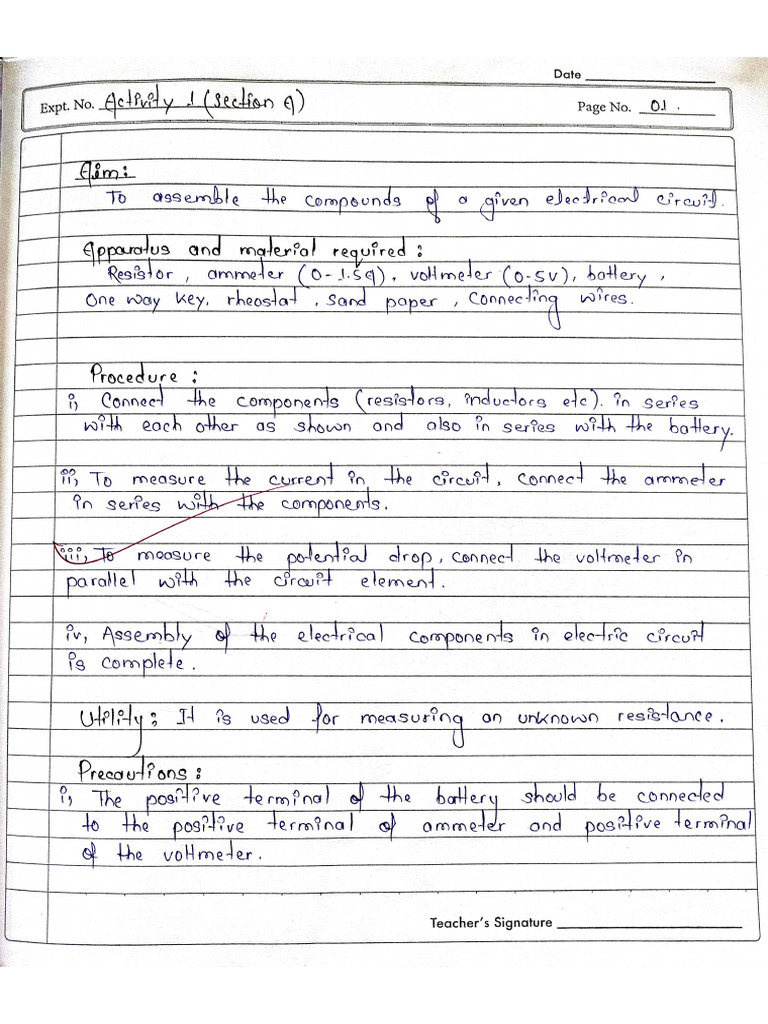 Date
Expt. No. Activity 1 (Section A)
Page No. 01.
Aim:
To assemble the compounds of a given electrical circuit.
Apparatus and material required:
Resistor, ammeter (0-1.5A), voltmeter (0-5V), battery,
One way key, rheostat, sand paper, Connecting wires.
Procedure:
i, Connect the components (resistors, inductors etc). in series
with each other as shown and also in series with the battery.
ii, To measure the current in the circuit, connect the ammeter
in series with the components.
iii, To measure the potential drop, connect the voltmeter in
parallel with the circuit element.
iv, Assembly of the electrical components in electric circuit
is complete.
Utility: It is used for measuring an unknown resistance.
Precautions:
i, The positive terminal of the battery should be connected
to the positive terminal of ammeter and positive terminal
of the voltmeter.
Teacher's Signature